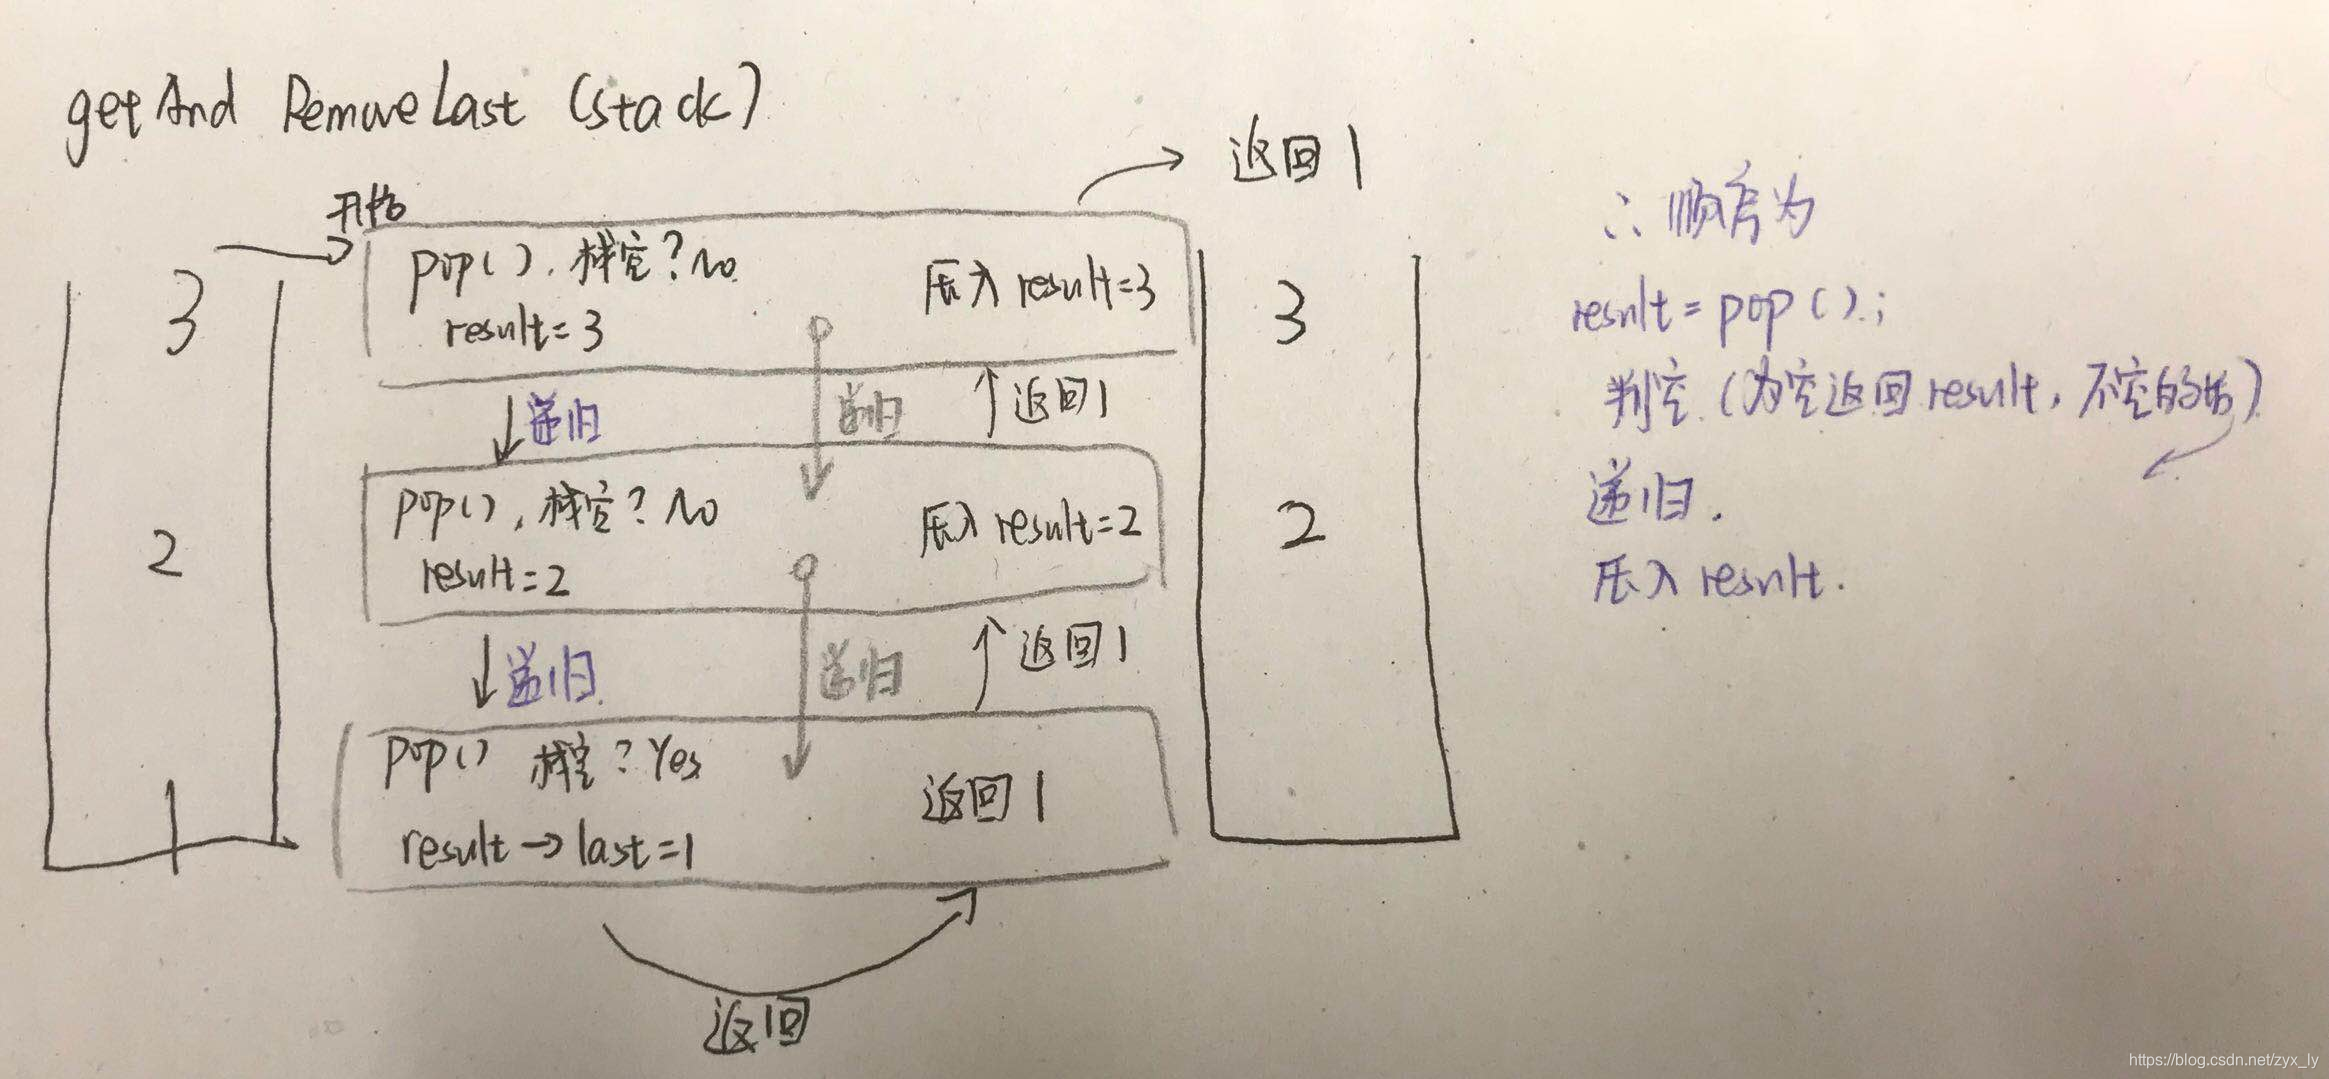 getAnd RemoveLast (stack)
返回 1
开始
3
pop(). 栈空? No
result=3
压入 result=3
3
递归
递归
返回1
2
pop(), 栈空? No
result=2
压入 result=2
2
递归
递归
返回1
1
pop() 栈空? Yes
result→last=1
返回 1
返回
∴ 顺序为
result=pop();
判空 (为空返回result, 不空的话)
递归.
压入 result.
https://blog.csdn.net/zyx_ly